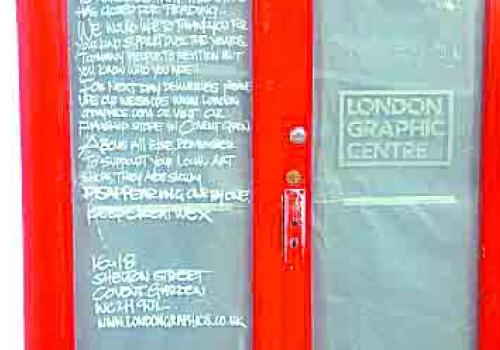 HAS CLOSED FOR TRADING..
WE WOULD LIKE TO THANK YOU FOR
YOUR KIND SUPPORT OVER THE YEARS.
TO MANY PEOPLE TO MENTION BUT
YOU KNOW WHO YOU ARE!!
FOR NEXT DAY DELIVERIES PLEASE
USE OUR WEBSITE WWW.LONDON
GRAPHICS.COM OR VISIT OUR
FLAGSHIP STORE IN COVENT GARDEN
ABOVE ALL ELSE, REMEMBER
TO SUPPORT YOUR LOCAL ART
SHOPS THEY ARE SLOWLY
DISAPPEARING ONE BY ONE.
KEEP CREATIVE X
16-18
SHELTON STREET
COVENT GARDEN
WC2H 9JL
WWW.LONDONGRAPHICS.CO.UK
LONDON
GRAPHIC
CENTRE